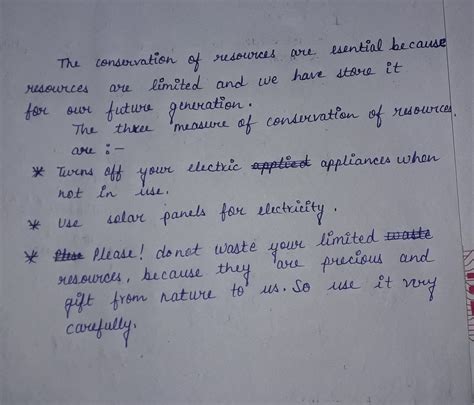 The conservation of resources are esential because
resources are limited and we have store it
for our future generation.
The three measure of conservation of resources
are :-
* Turns off your electric applied appliances when
not in use.
* Use solar panels for electricity.
* Plese Please! donot waste your limited waste
resources, because they are precious and
gift from nature to us. So use it very
carefully.